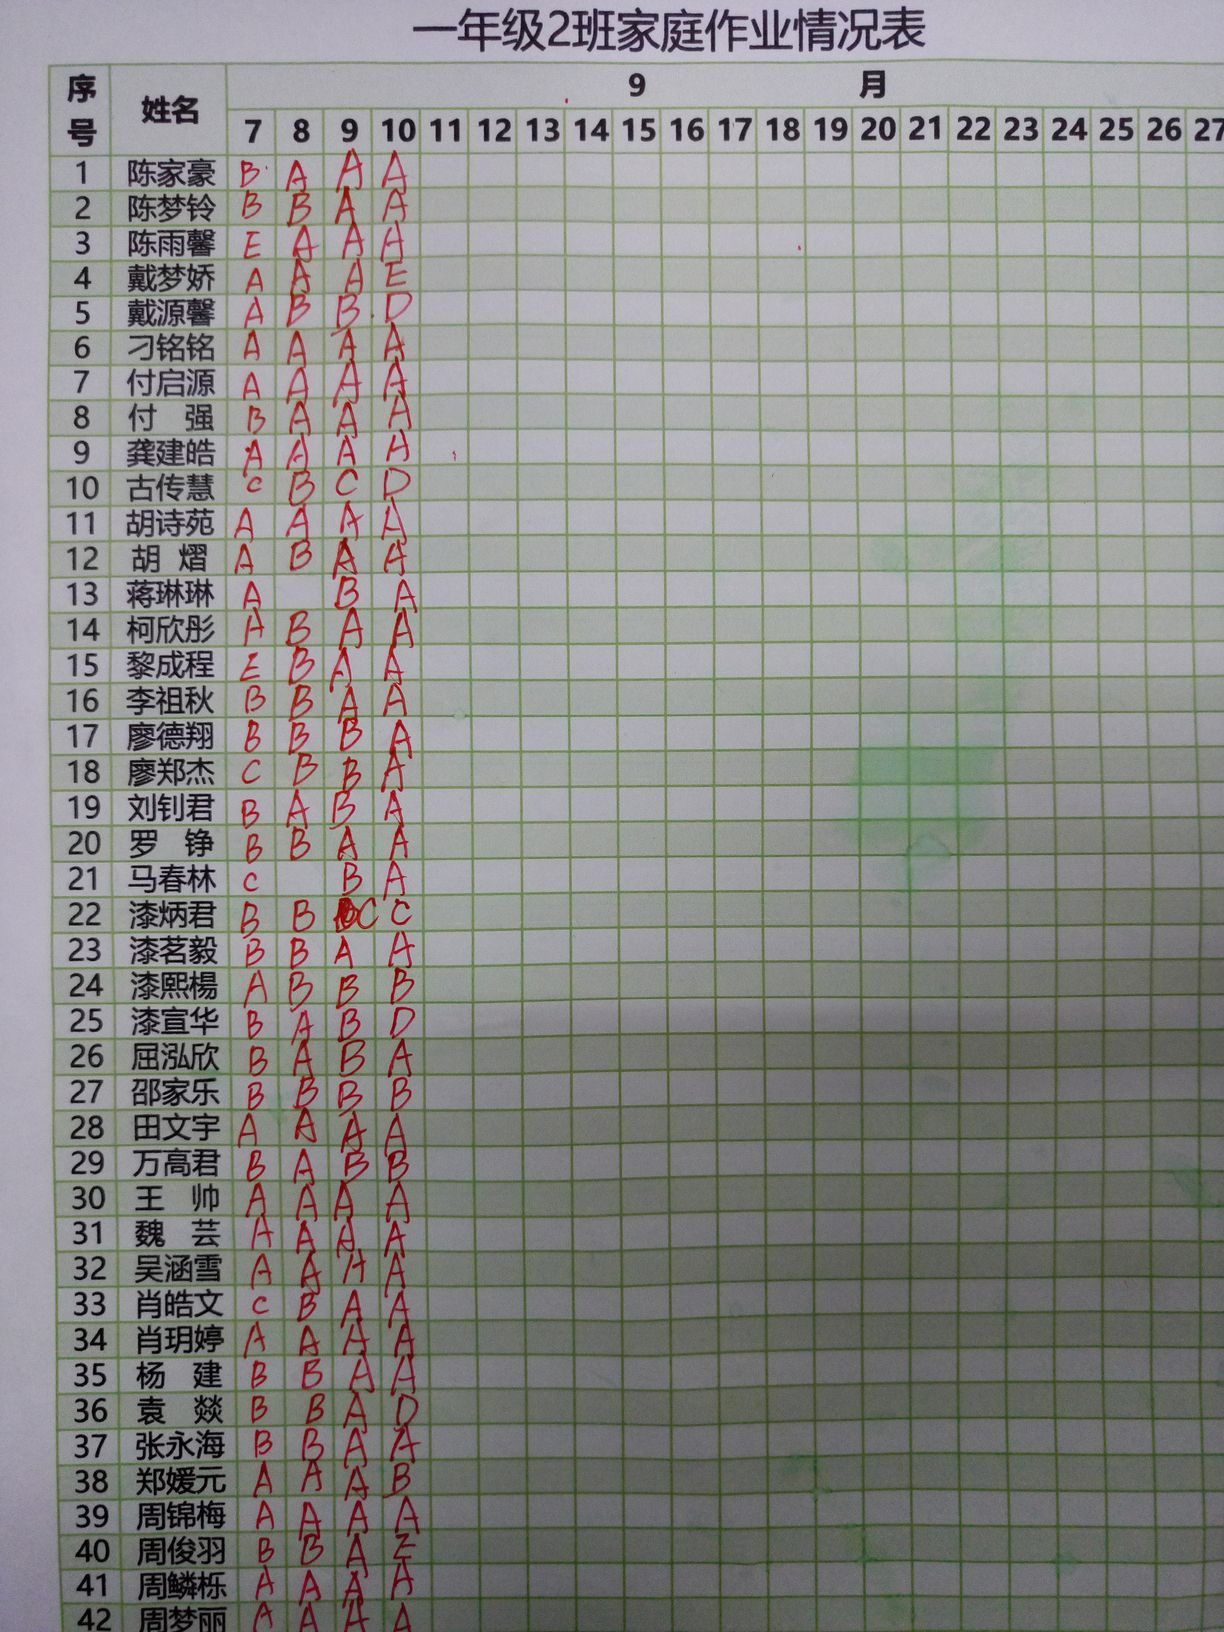 一年级2班家庭作业情况表
序号 姓名 9 月
7 8 9 10 11 12 13 14 15 16 17 18 19 20 21 22 23 24 25 26 27
1 陈家豪 B A A A
2 陈梦铃 B B A A
3 陈雨馨 E A A A
4 戴梦娇 A A A E
5 戴源馨 A B B D
6 刁铭铭 A A A A
7 付启源 A A A A
8 付 强 B A A A
9 龚建皓 A A A A
10 古传慧 C B C D
11 胡诗苑 A A A A
12 胡 熠 A B A A
13 蒋琳琳 A B A
14 柯欣彤 A B A A
15 黎成程 E B A A
16 李祖秋 B B A A
17 廖德翔 B B B A
18 廖郑杰 C B B A
19 刘钊君 B A B A
20 罗 铮 B B A A
21 马春林 C B A
22 漆炳君 B B C C
23 漆茗毅 B B A A
24 漆熙楊 A B B B
25 漆宣华 B A B D
26 屈泓欣 B A B A
27 邵家乐 B B B B
28 田文宇 A A A A
29 万高君 B A B B
30 王 帅 A A A A
31 魏 芸 A A A A
32 吴涵雪 A A A A
33 肖皓文 C B A A
34 肖玥婷 A A A A
35 杨 建 B B A A
36 袁 燚 B B A D
37 张永海 B B A A
38 郑媛元 A A A B
39 周锦梅 A A A A
40 周俊羽 B B A E
41 周鳞栎 A A A A
42 周梦丽 A A A A